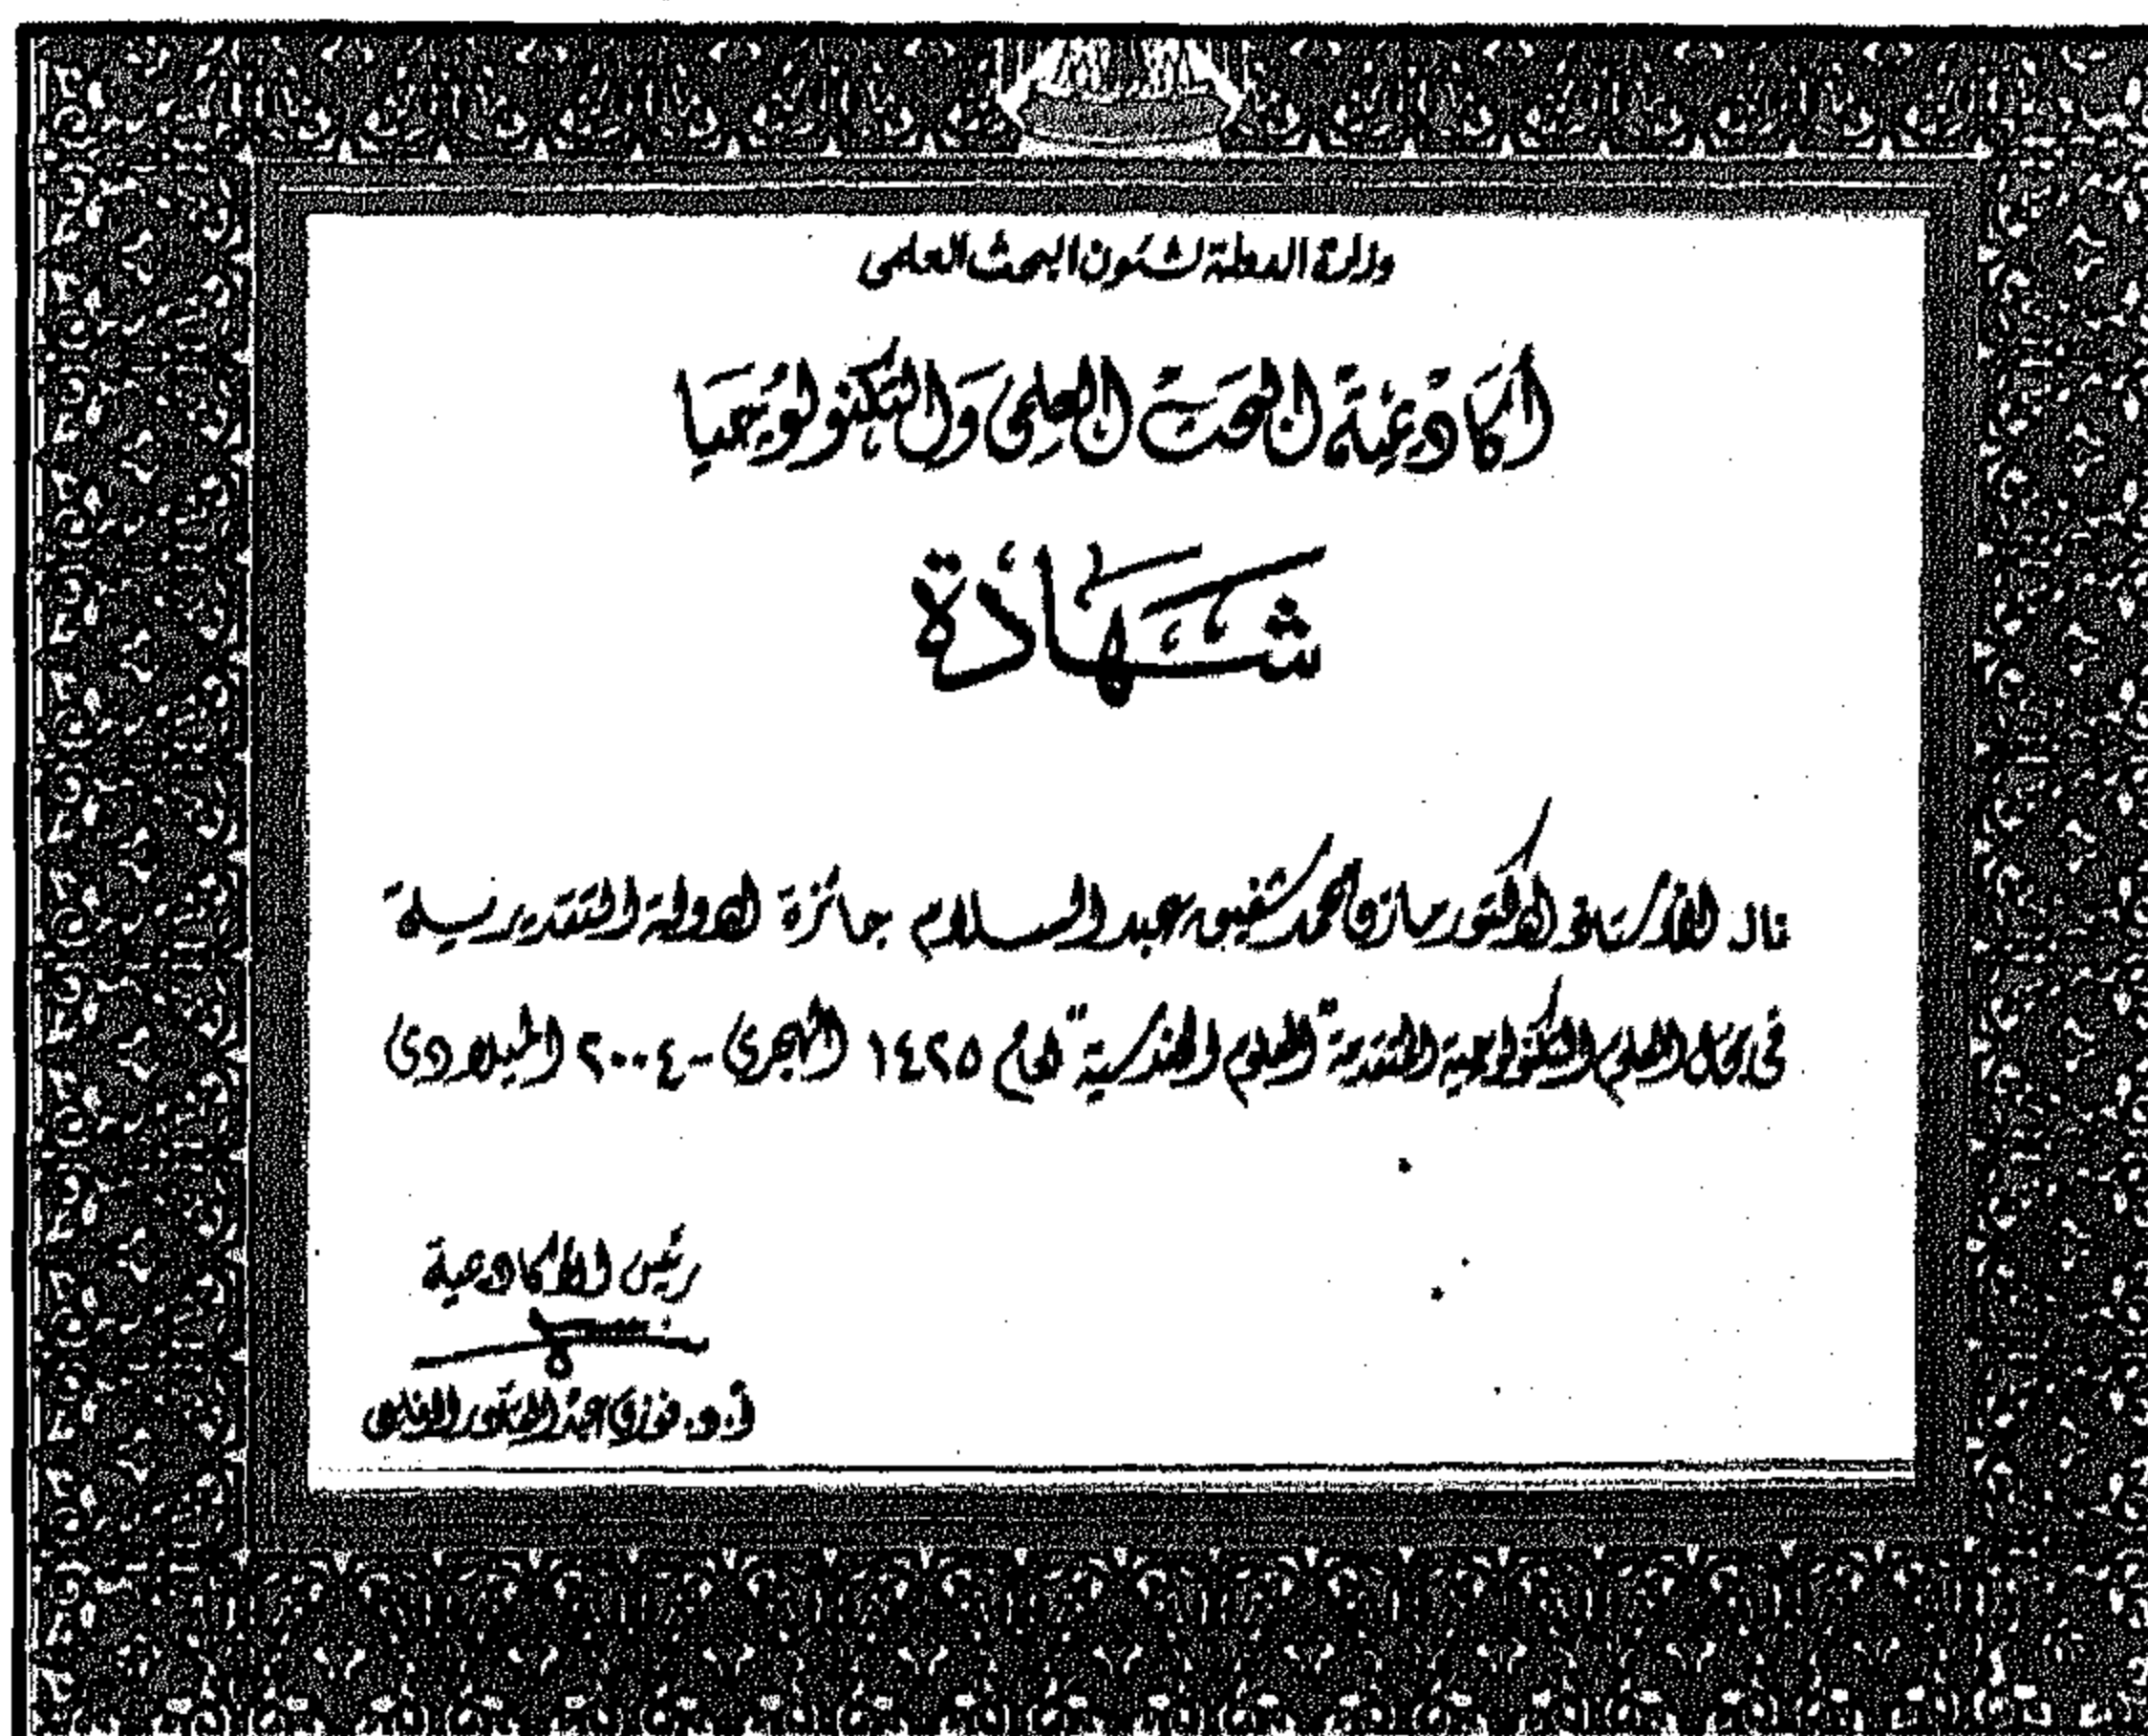 وزارة الدولة لشئون البحث العلمى
أكاديمية البحث العلمى والتكنولوجيا
شهادة
نال الأستاذ الدكتور مازن أحمد شفيق عبد السلام جائزة الدولة التقديرية
فى مجال العلوم التكنولوجية المتقدمة "العلوم الهندسية" لعام ١٤٢٥ الهجرى - ٢٠٠٤ الميلادى
رئيس الأكاديمية
أ.د. فوزى عبد